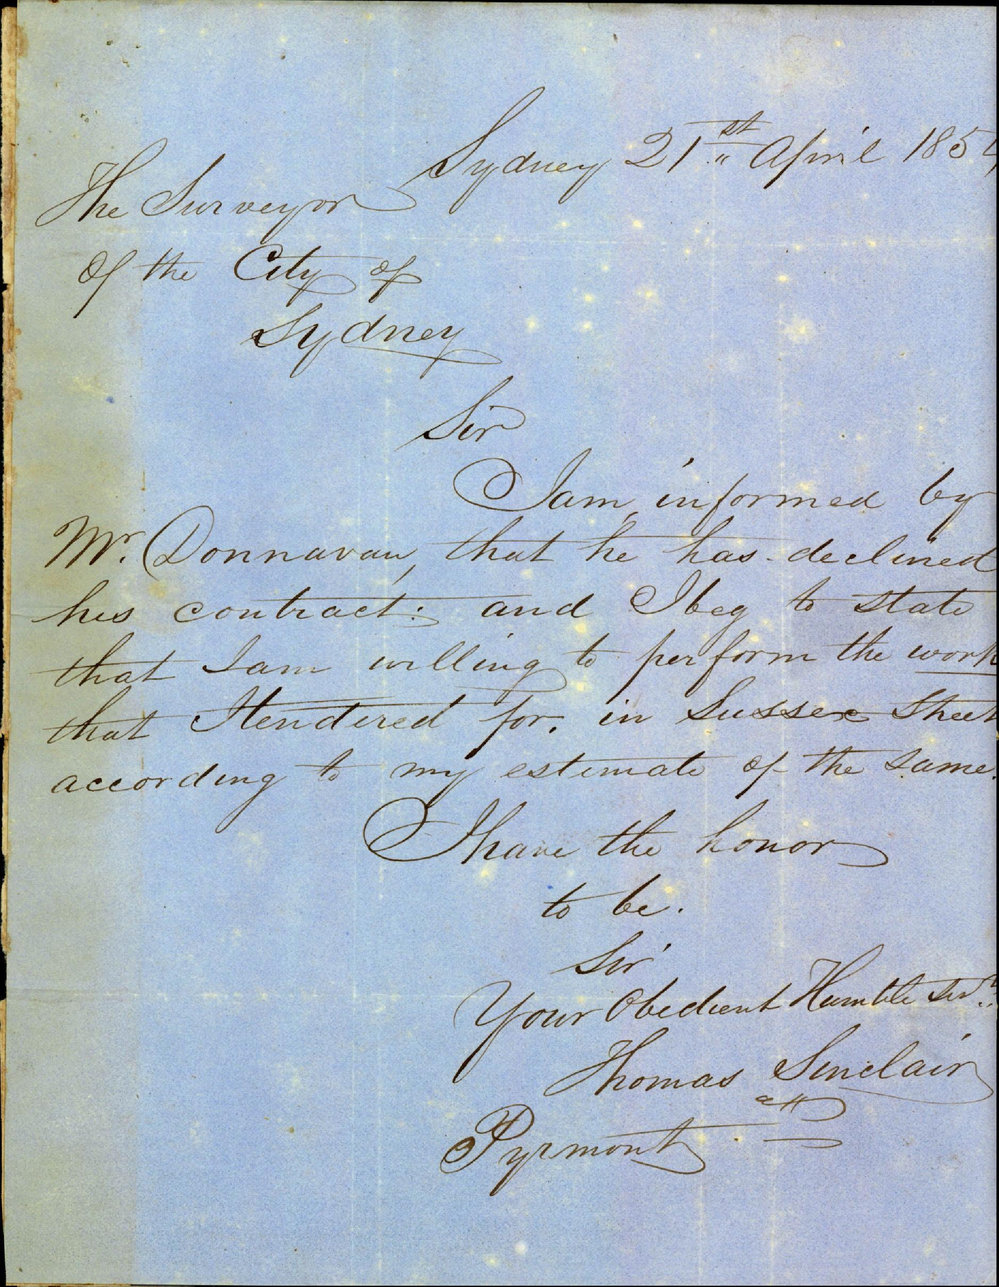 Sydney 21st April 1854
The Surveyor
Of the City of
Sydney
Sir
I am informed by
Mr. Donnavan, that he has declined
his contract: and I beg to state
that I am willing to perform the work
that I tendered for, in Sussex Street
according to my estimate of the same.
I have the honor
to be.
Sir
Your Obedient Humble Servt.
Thomas Sinclair
Pyrmont